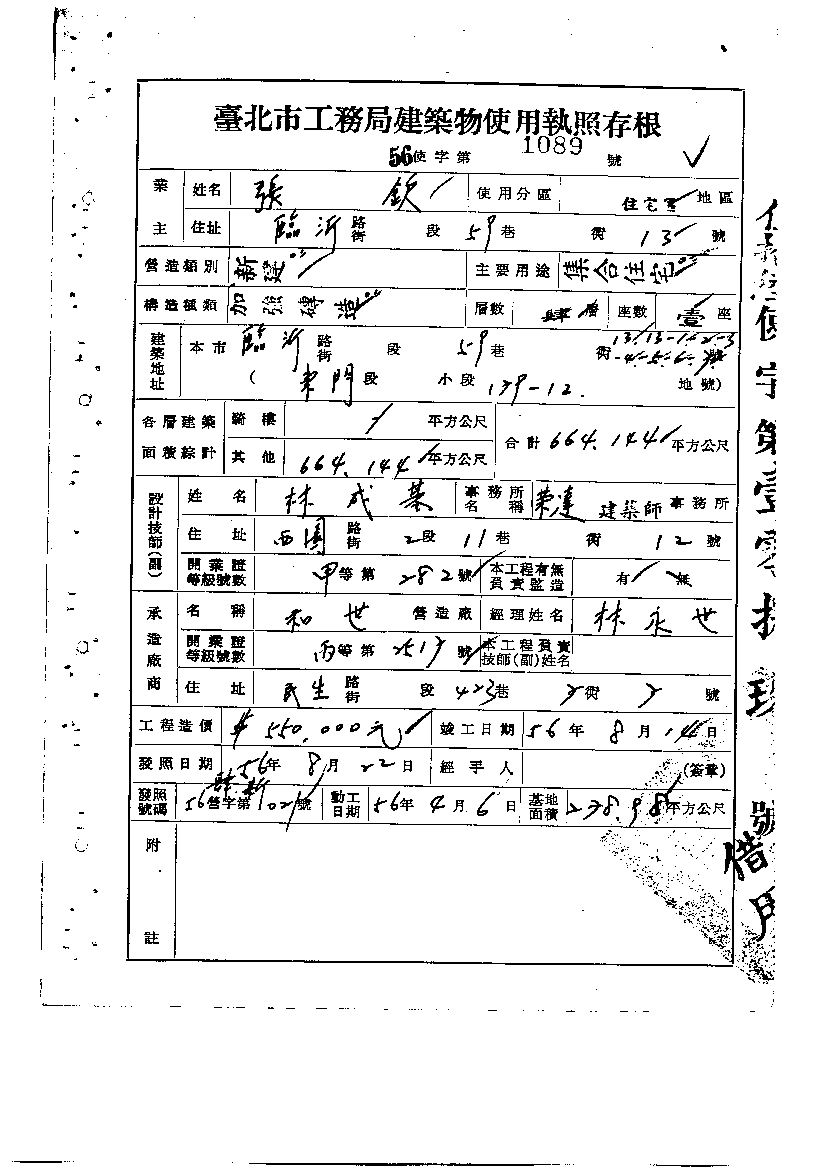 臺北市工務局建築物使用執照存根
56使字第 1089 號
業主 姓名 張 欽 使用分區 住宅 地區
住址 臨沂 路街 段 59巷 街 13 號
營造類別 新建 主要用途 集合住宅
構造種類 加強磚造 層數 肆層 座數 壹座
建築地址 本市 臨沂 路街 段 59巷 街 13,13-1-2-3-4-5-6-7號
( 東門段 小段 139-12 地號)
各層建築面積綜計 騎樓 / 平方公尺 合計 664.144 平方公尺
其他 664.144 平方公尺
設計技師(副) 姓名 林成 事務所名稱 榮達 建築師 事務所
住址 西園 路街 2段 11巷 街 12 號
開業證等級號數 甲等第 282號 本工程有無負責監造 有 無
承造廠商 名稱 和世 營造廠 經理姓名 林永世
開業證等級號數 丙等第 號 本工程負責技師(副)姓名
住址 民生 路街 段 423巷 街 號
工程造價 $550,000元 竣工日期 56年 8月 14日
發照日期 56年 8月 22日 經手人 (簽章)
發照號碼 56營字第 021號 動工日期 56年 4月 6日 基地面積 238.98平方公尺
附註
使字第壹零捌玖號
借用